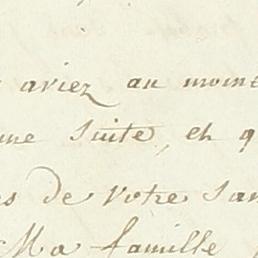 aviez au moins
une suite, et q
s de votre san
Ma famille